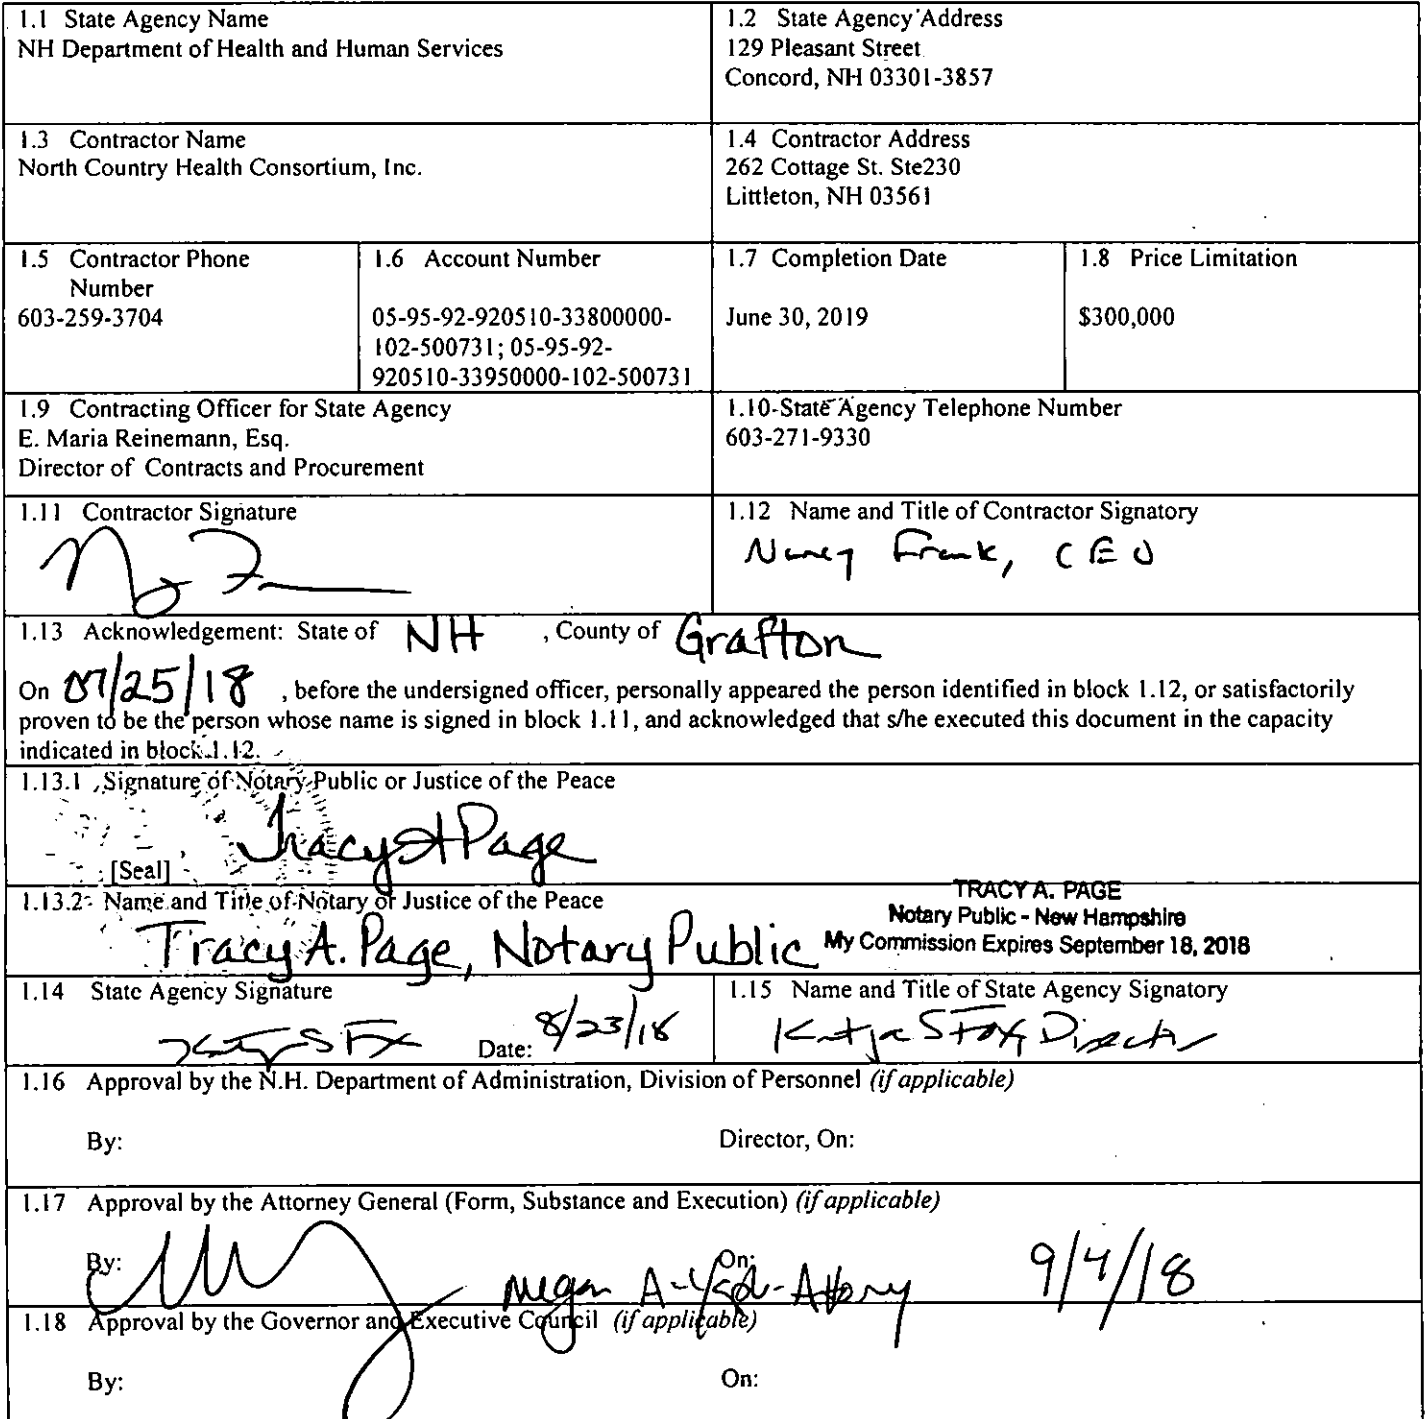 1.1 State Agency Name
NH Department of Health and Human Services
1.2 State Agency Address
129 Pleasant Street
Concord, NH 03301-3857
1.3 Contractor Name
North Country Health Consortium, Inc.
1.4 Contractor Address
262 Cottage St. Ste230
Littleton, NH 03561
1.5 Contractor Phone
Number
603-259-3704
1.6 Account Number
05-95-92-920510-33800000-
102-500731; 05-95-92-
920510-33950000-102-500731
1.7 Completion Date
June 30, 2019
1.8 Price Limitation
$300,000
1.9 Contracting Officer for State Agency
E. Maria Reinemann, Esq.
Director of Contracts and Procurement
1.10 State Agency Telephone Number
603-271-9330
1.11 Contractor Signature
1.12 Name and Title of Contractor Signatory
Nancy Frank, CEO
1.13 Acknowledgement: State of NH , County of Grafton
On 07/25/18 , before the undersigned officer, personally appeared the person identified in block 1.12, or satisfactorily
proven to be the person whose name is signed in block 1.11, and acknowledged that s/he executed this document in the capacity
indicated in block 1.12.
1.13.1 Signature of Notary Public or Justice of the Peace
Tracy A Page
[Seal]
1.13.2 Name and Title of Notary or Justice of the Peace
Tracy A. Page, Notary Public
TRACY A. PAGE
Notary Public - New Hampshire
My Commission Expires September 18, 2018
1.14 State Agency Signature
Date: 8/23/18
1.15 Name and Title of State Agency Signatory
Katja S Fox, Director
1.16 Approval by the N.H. Department of Administration, Division of Personnel (if applicable)
By:
Director, On:
1.17 Approval by the Attorney General (Form, Substance and Execution) (if applicable)
By:
On:
Megan A- Attorney 9/4/18
1.18 Approval by the Governor and Executive Council (if applicable)
By:
On: